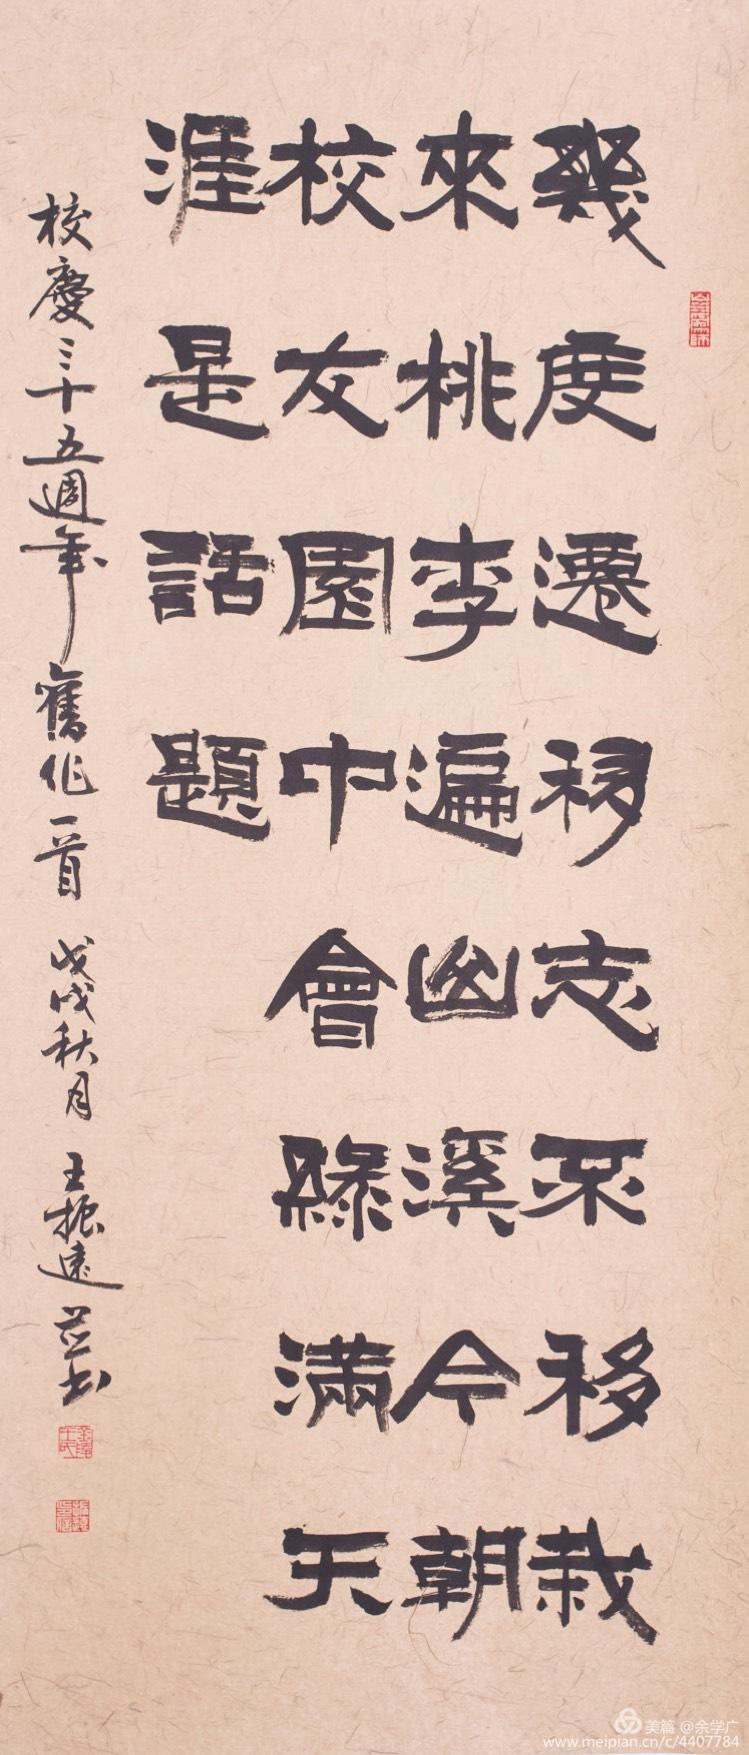 幾度遷移志不移栽
來桃李遍山溪今朝
校友園中會綠滿天
涯是話題
校慶三十五週年舊作一首 戊戌秋月 王振遠並書
美篇 @余学广
www.meipian.cn/c/4407784